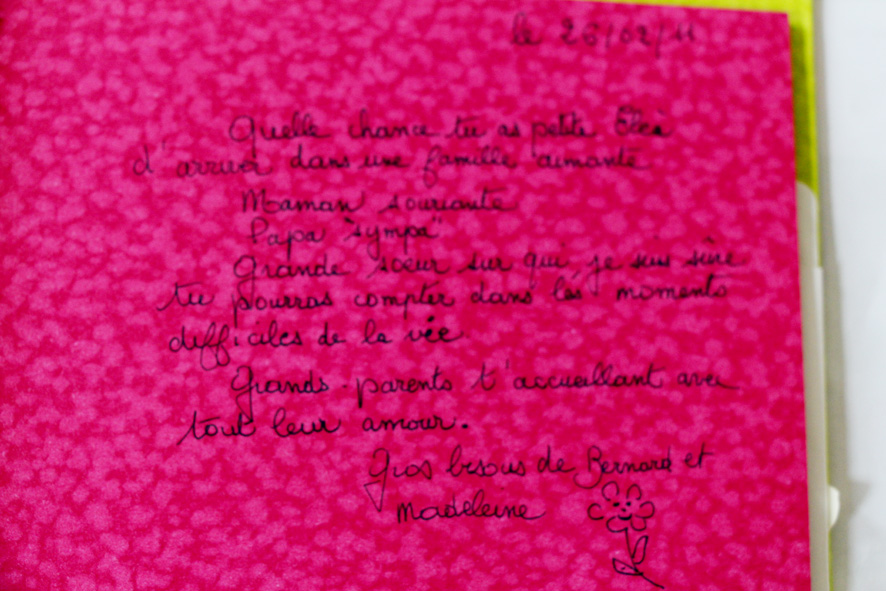 le 26/02/11
Quelle chance tu as petite
d'arriver dans une famille aimante
Maman souriante
Papa "sympa"
Grande soeur sur qui je suis sûre
tu pourras compter dans les moments
difficiles de la vie
Grands-parents t'accueillant avec
tout leur amour.
Gros bisous de Bernard et
Madeleine